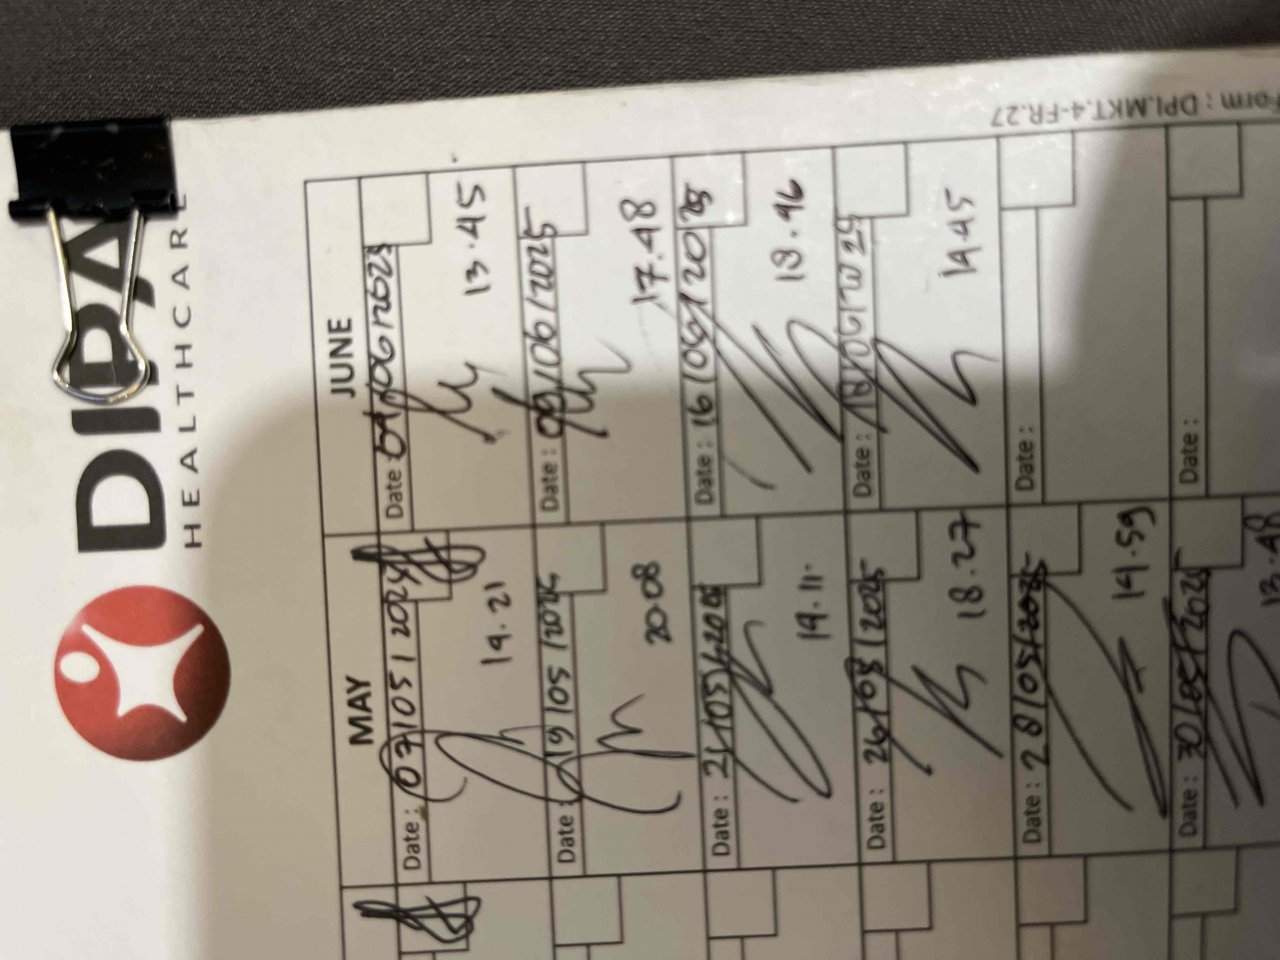 DIPA
HEALTHCARE
MAY
JUNE
Date : 07/05/2025
19.21
Date :
13.45
Date : 19/05/2025
20.08
Date : 09/06/2025
17.48
Date : 21/05/2025
19.11
Date : 16/06/2025
Date : 26/05/2025
18.27
Date : 18/06/2025
14.45
Date : 28/05/2025
14.59
Date :
Date : 30/05/2025
13.48
Date :
Form : DPI.MKT.4-FR.27